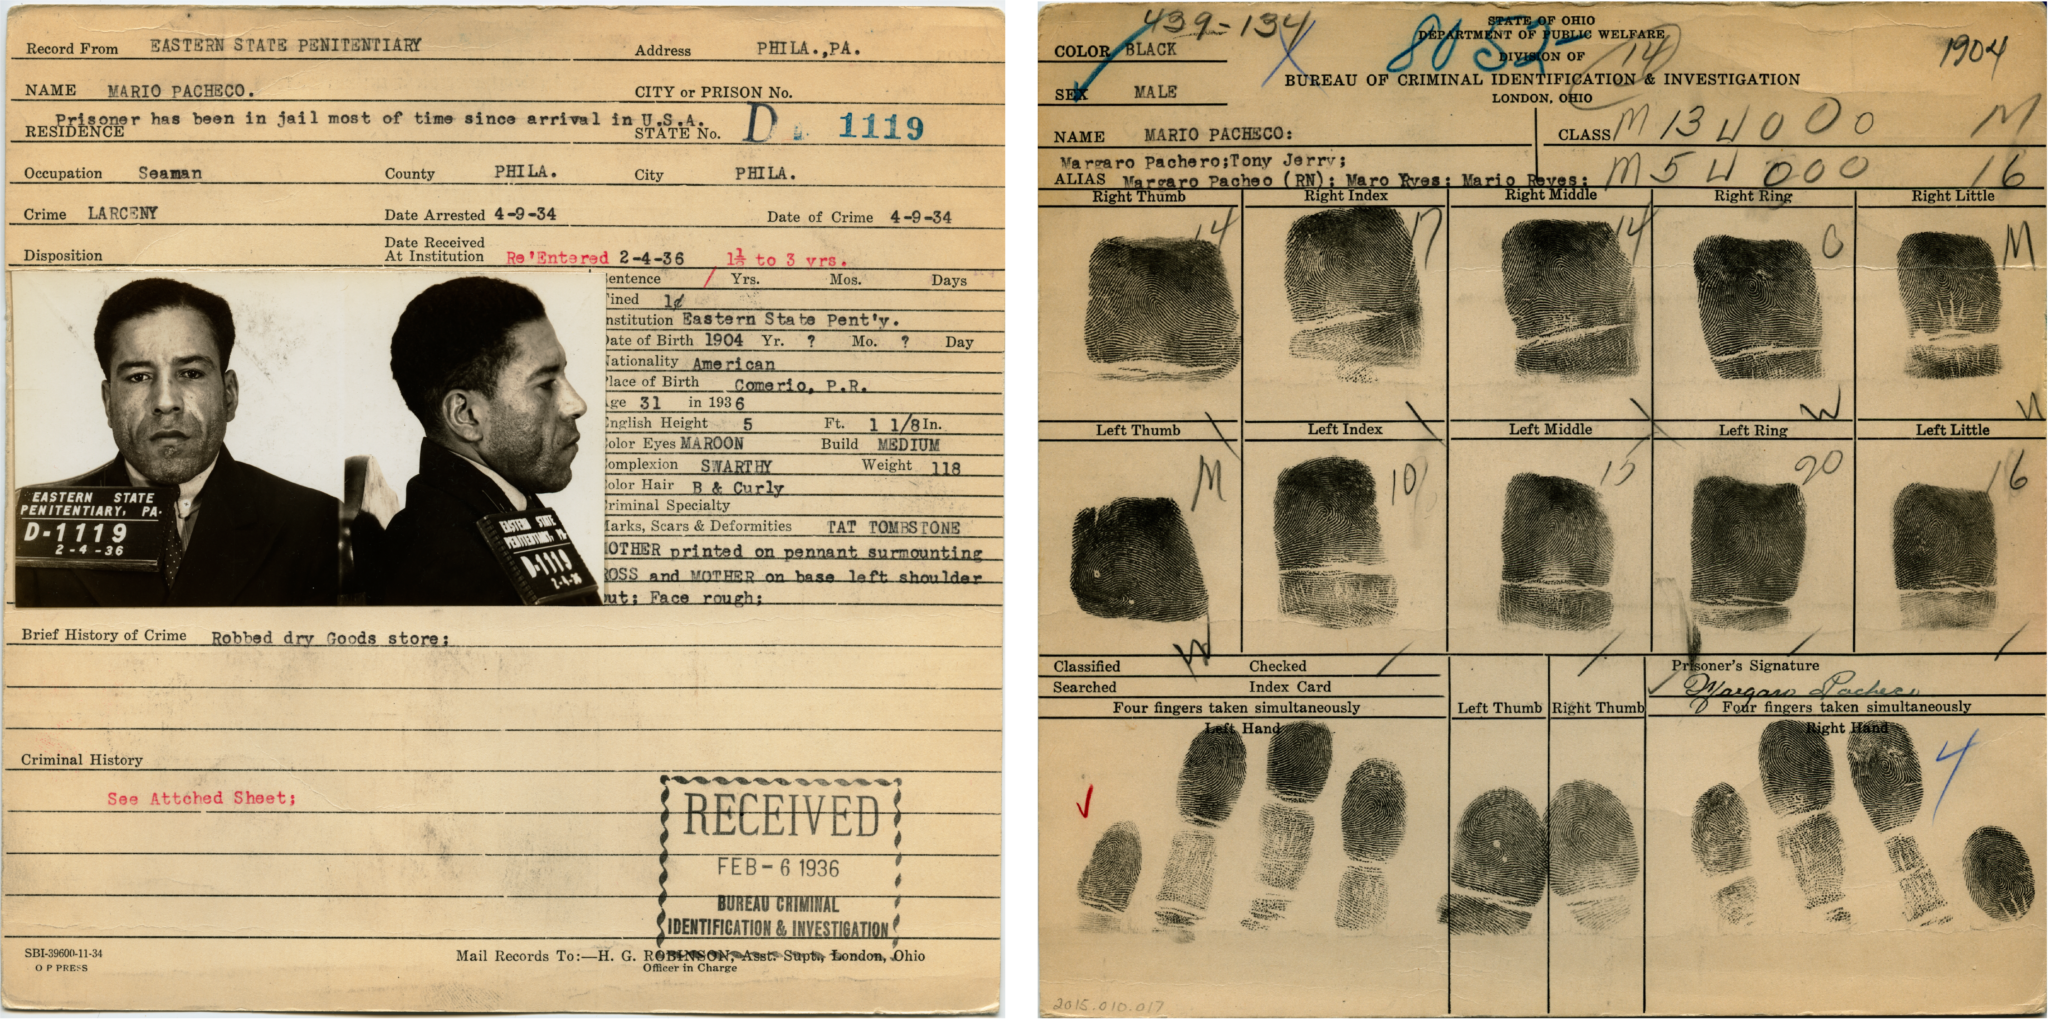 Record From EASTERN STATE PENITENTIARY Address PHILA.,PA.
NAME MARIO PACHECO. CITY or PRISON No.
Prisoner has been in jail most of time since arrival in U.S.A.
RESIDENCE STATE No. D 1119
Occupation Seaman County PHILA. City PHILA.
Crime LARCENY Date Arrested 4-9-34 Date of Crime 4-9-34
Date Received
Disposition At Institution Re'Entered 2-4-36 1½ to 3 yrs.
entence / Yrs. Mos. Days
ined 1¢
nstitution Eastern State Pent'y.
Date of Birth 1904 Yr. ? Mo. ? Day
Nationality American
Place of Birth Comerio, P.R.
ge 31 in 1936
English Height 5 Ft. 1 1/8 In.
olor Eyes MAROON Build MEDIUM
omplexion SWARTHY Weight 118
olor Hair B & Curly
riminal Specialty
Marks, Scars & Deformities TAT TOMBSTONE
MOTHER printed on pennant surmounting
ROSS and MOTHER on base left shoulder
out; Face rough;
EASTERN STATE
PENITENTIARY, PA.
D-1119
2-4-36
EASTERN STATE
PENITENTIARY, PA
D-1119
2-4-36
Brief History of Crime Robbed dry Goods store;
Criminal History
See Attched Sheet;
RECEIVED
FEB-6 1936
BUREAU CRIMINAL
IDENTIFICATION & INVESTIGATION
SBI-39600-11-34
O P PRESS
Mail Records To:—H. G. ROBINSON, Asst. Supt., London, Ohio
Officer in Charge
439-134
8052
14
1904
STATE OF OHIO
DEPARTMENT OF PUBLIC WELFARE
COLOR BLACK
DIVISION OF
BUREAU OF CRIMINAL IDENTIFICATION & INVESTIGATION
SEX MALE
LONDON, OHIO
NAME MARIO PACHECO: CLASS M 13 U 0 0 0 M
Margaro Pachero;Tony Jerry;
ALIAS Margaro Pacheo (RN); Maro Ryes; Mario Reyes; M 5 U 000 16
Right Thumb Right Index Right Middle Right Ring Right Little
14 17 14 0 M
W
Left Thumb Left Index Left Middle Left Ring Left Little
M 10 15 20 16
W
Classified Checked Prisoner's Signature
Searched Index Card Margaro Pacheco
Four fingers taken simultaneously Left Thumb Right Thumb Four fingers taken simultaneously
Left Hand Right Hand
4
2015.010.017